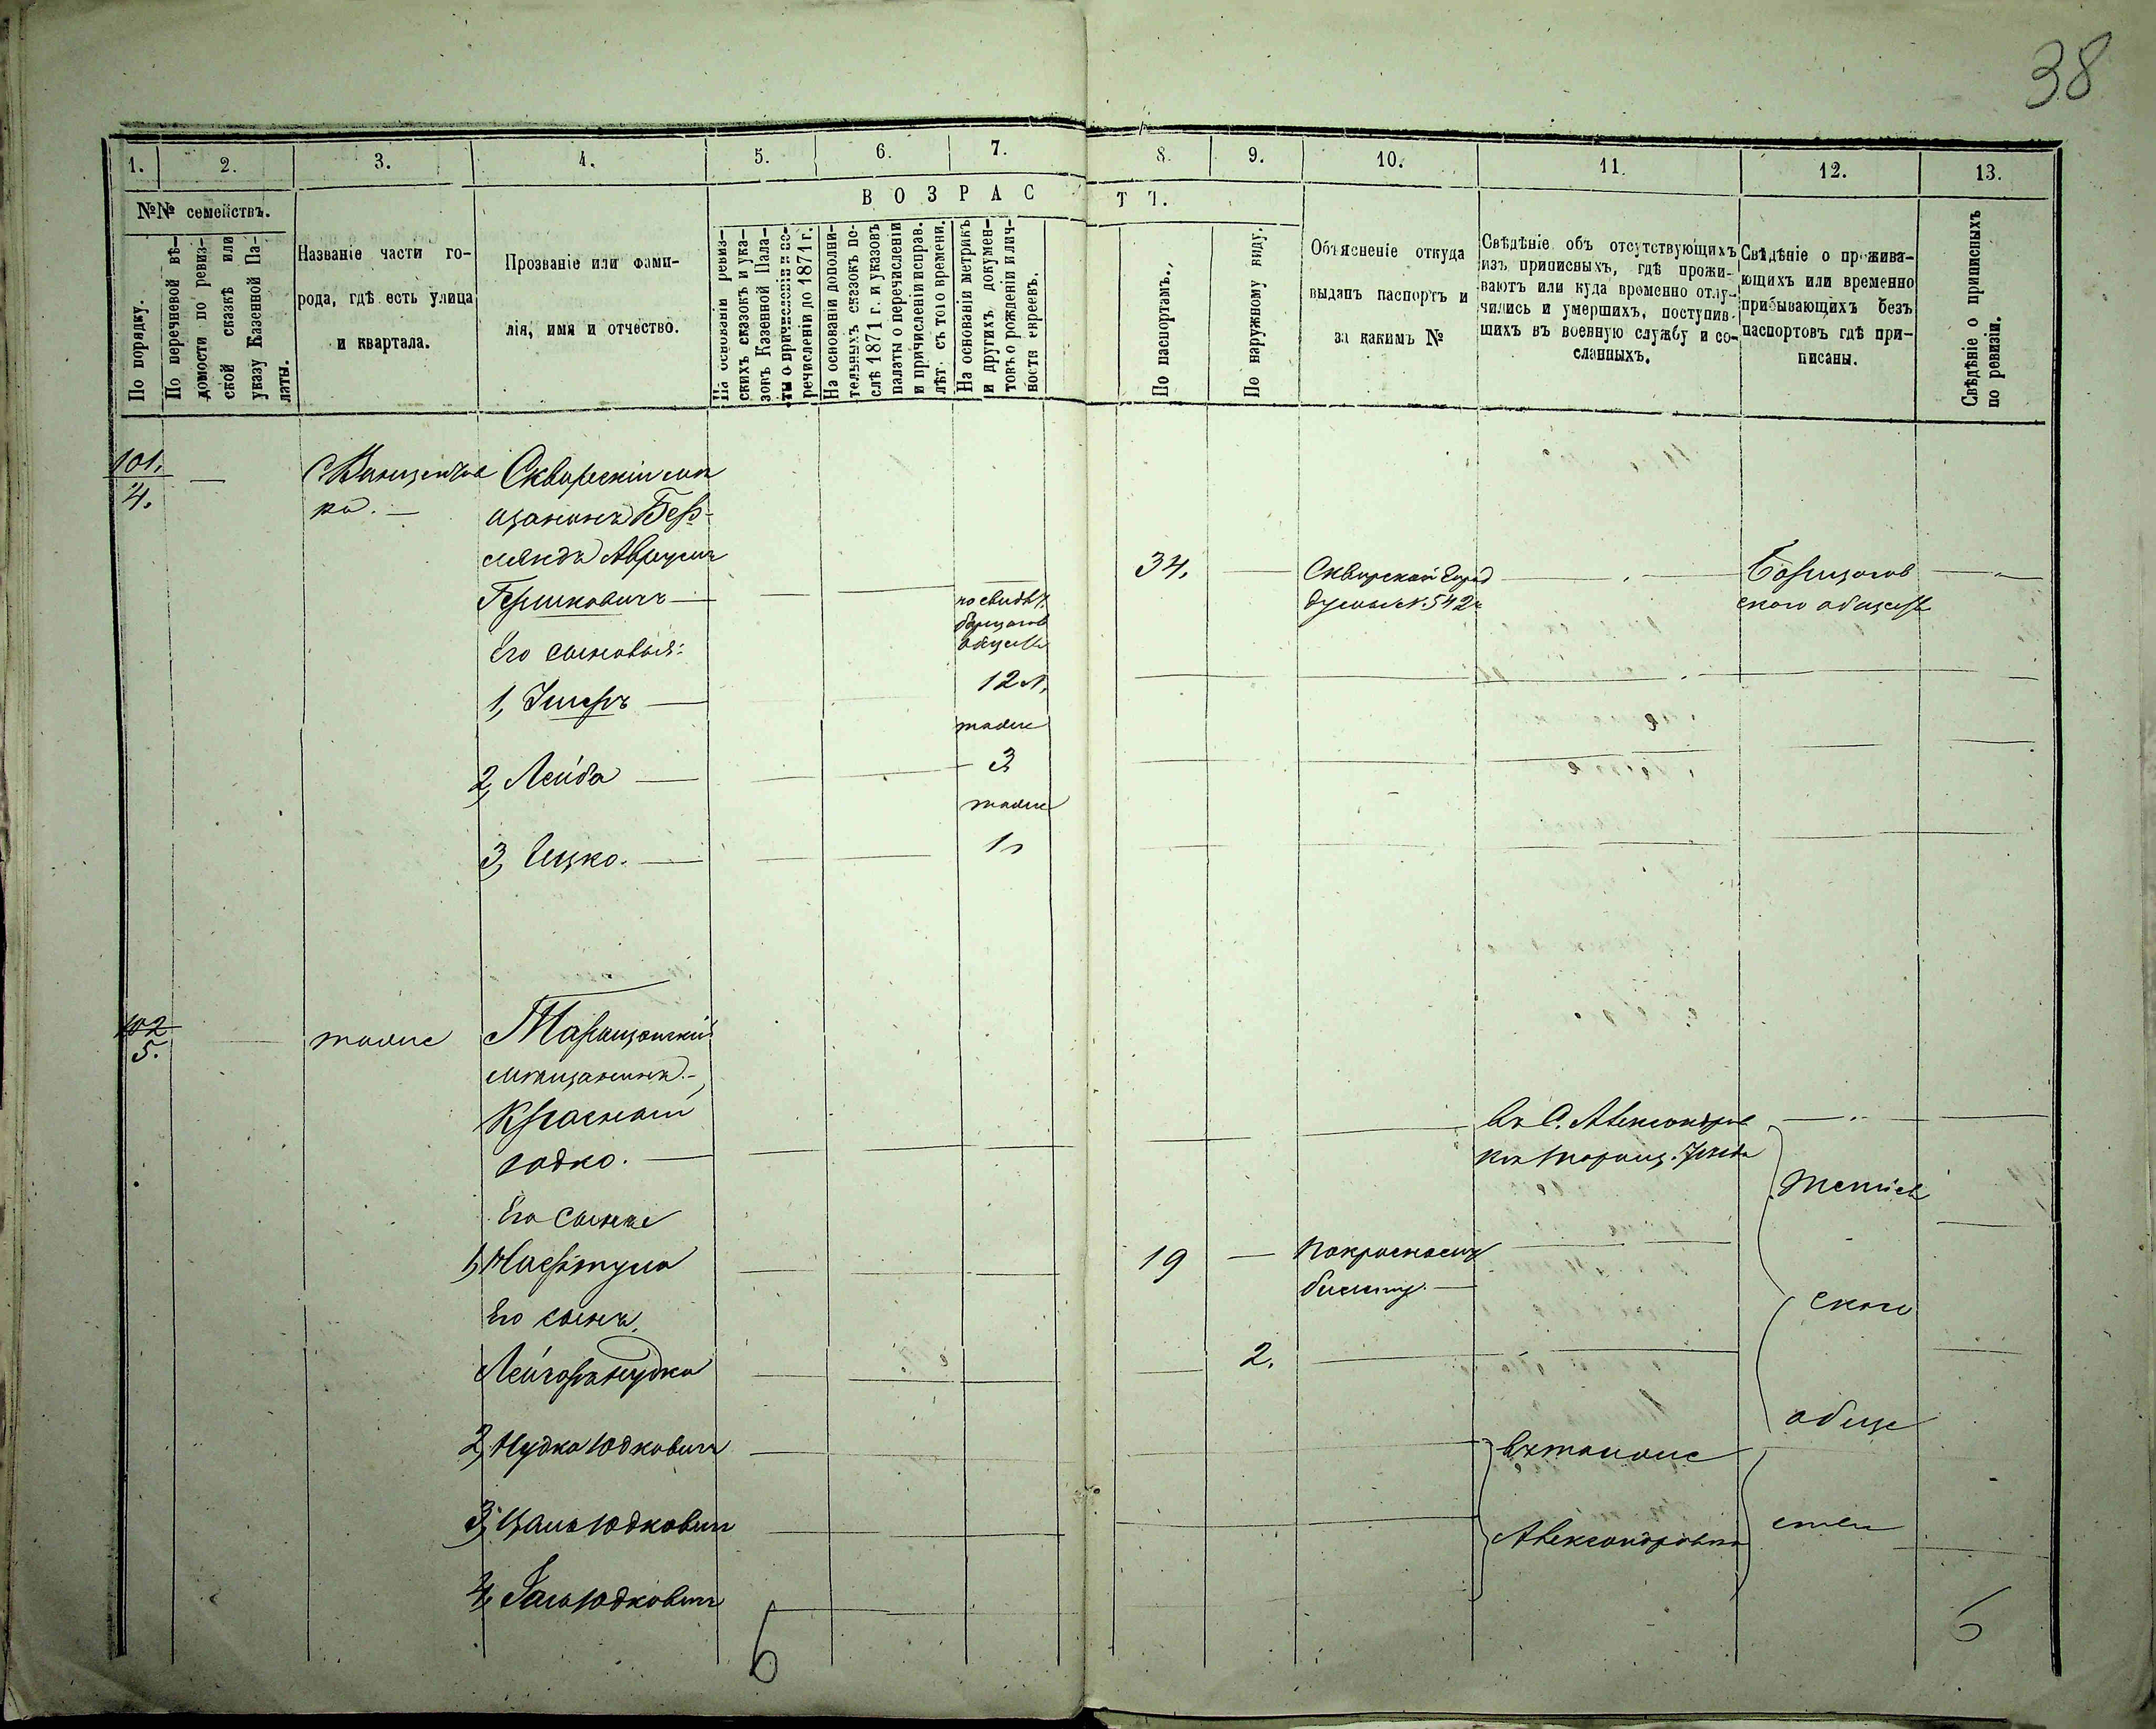 38
1. 2. 3. 4. 5. 6. 7. 8. 9. 10. 11. 12. 13.
№№ семействъ.
По порядку.
По перечневой вѣ-
домости по ревиз-
ской сказкѣ или
указу Казенной Па-
латы.
Названіе части го-
рода, гдѣ есть улица
и квартала.
Прозваніе или фами-
лія, имя и отчество.
ВОЗРАСТЪ.
На основаніи ревиз-
скихъ сказокъ и ука-
зокъ Казенной Пала-
ты о причисленіи и пе-
речисленіи до 1871 г.
На основаніи дополни-
тельныхъ сказокъ по-
слѣ 1871 г. и указовъ
палаты о перечисленіи
и причисленіи исправ.
лѣт съ того времени.
На основаніи метрикъ
и другихъ докумен-
товъ о рожденіи и лич-
ности евреевъ.
По паспортамъ.
По наружному виду.
Объясненіе откуда
выданъ паспортъ и
за какимъ №
Свѣдѣніе объ отсутствующихъ
изъ приписныхъ, гдѣ прожи-
ваютъ или куда временно отлу-
чились и умершихъ, поступив-
шихъ въ военную службу и со-
сланныхъ.
Свѣдѣніе о прожива-
ющихъ или временно
прибывающихъ безъ
паспортовъ гдѣ при-
писаны.
Свѣдѣніе о приписныхъ
по ревизіи.
101.
4.
ка.
Сквирскій мѣ
щанинъ Бер-
Аврумъ
Гершковичъ
34.
Сквирской Город
думы № 542
ского общест
по свидѣт.
общест
Его сыновья:
1, Ушеръ
12 л.
тоже
2, Лейба
3
тоже
3, Ицко.
1
102
5.
тоже
Таращанскій
мѣщанинъ
Красный
Юдко.
Въ С. Александров
ка Таращ. Уѣзда
Его сынъ
19
билету.
Его сынъ
2.
2, Нудка Юдковичъ
3, Юдковичъ
4, Юдковичъ
Александровка
Тетіев
ского
обще
ства
6
6